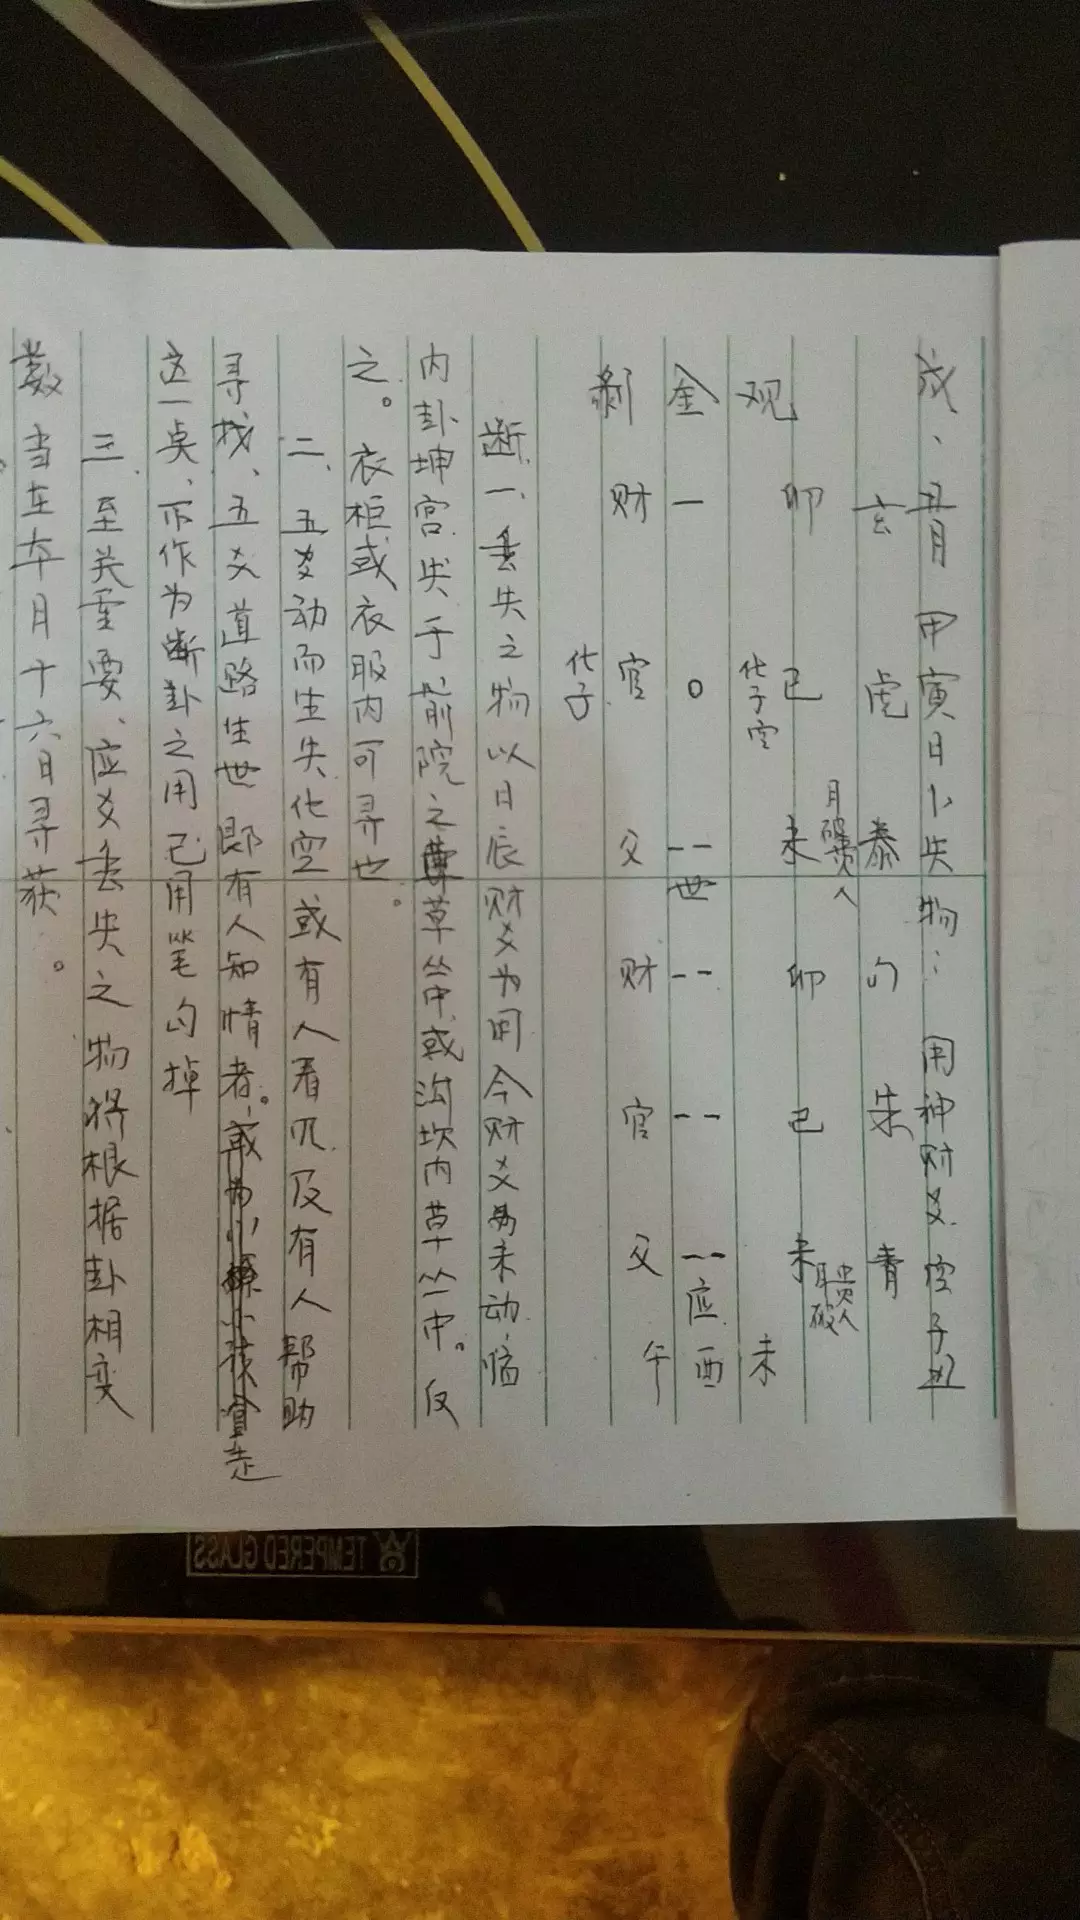 戌、丑月 甲寅日卜失物：用神财爻.空子丑
玄 虎 泰 勾 朱 青
卯 巳 未 月破贵人 卯 巳 未 月破贵人
观 化子空 未
金 一 O -- 世 -- -- -- 应 酉
剥 财 官 父 财 官 父 午
化子
断.一、丢失之物以日辰财爻为用今财爻未动,临
内卦坤宫.失于前院之草草丛中或沟坎内草丛中。反
之。衣柜或衣服内可寻也。
二、五爻动而生失化空或有人看见.及有人帮助
寻找、五爻道路生世即有人知情者。或为小孩拿走
这一点、不作为断卦之用已用笔勾掉
三.至关重要、应爻丢失之物将根据卦相变
数当在本月十六日寻获。
TEMPERED GLASS